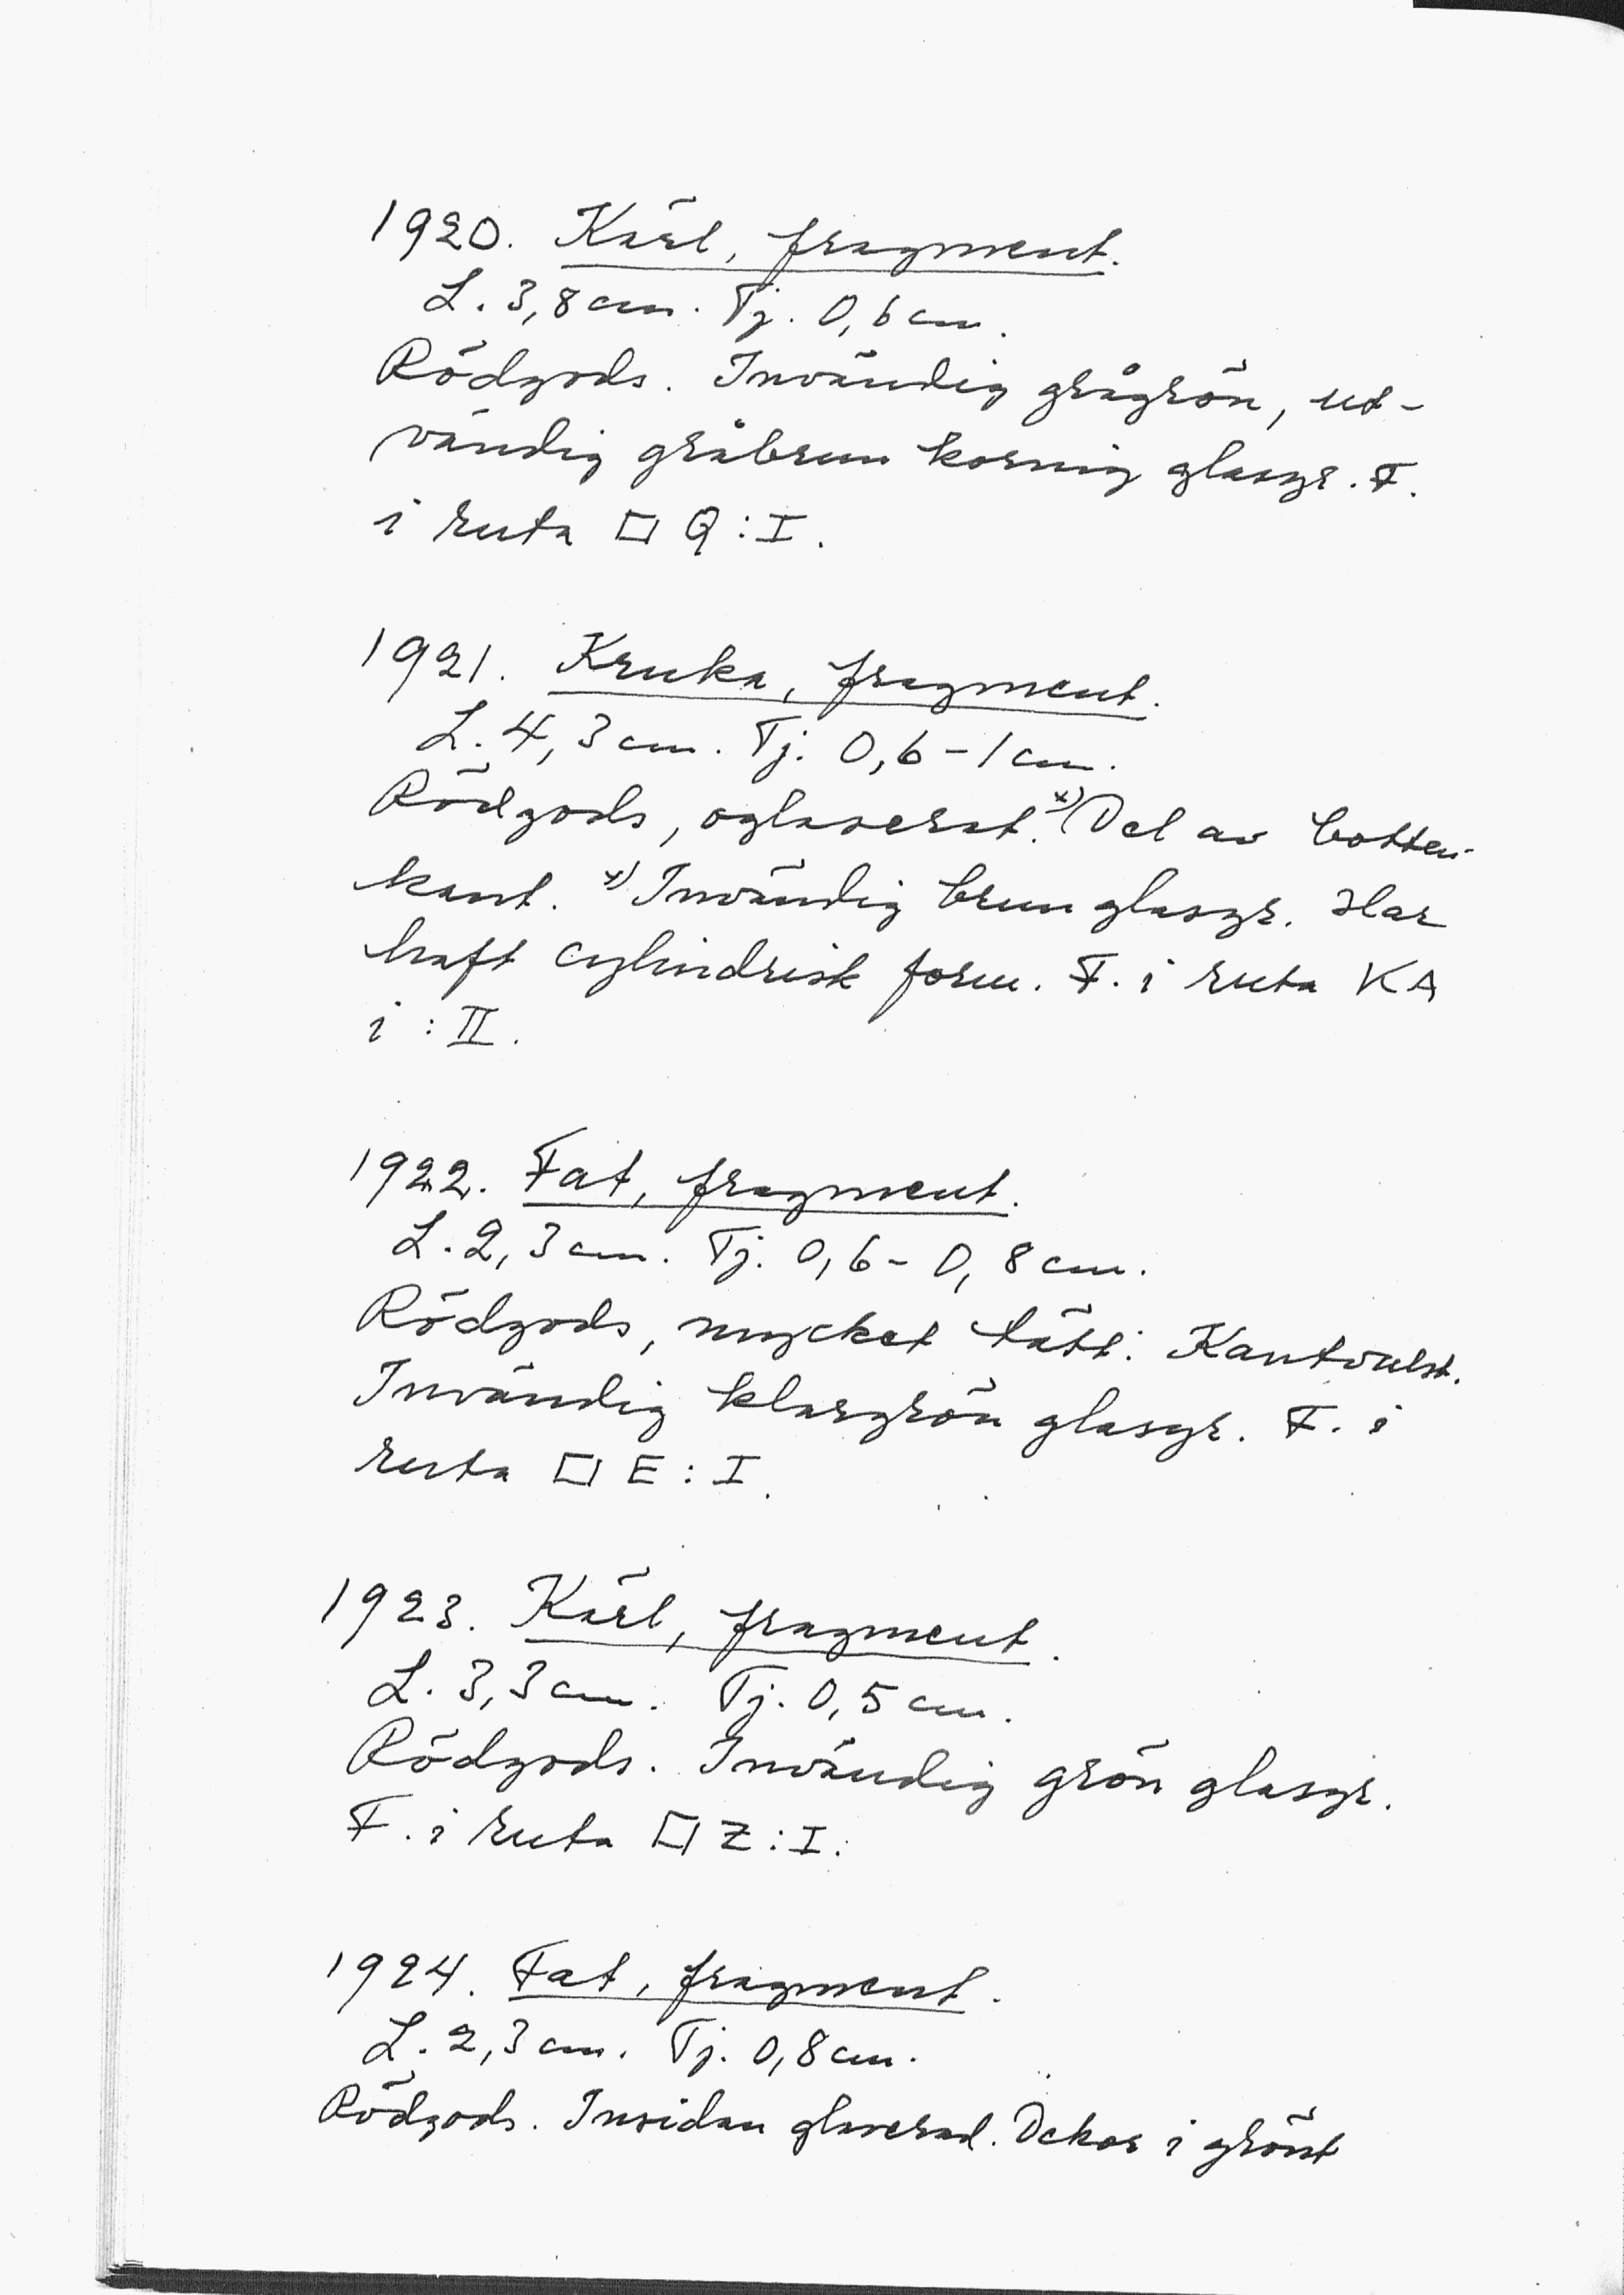 1920. Kärl, fragment.
L. 3,8 cm. Tj. 0,6 cm.
Rödgods. Invändig grågrön, ut-
vändig gråbrun kornig glasyr. F.
i ruta □ Q : I.
1921. Kruka, fragment.
L. 4,3 cm. Tj. 0,6 - 1 cm.
Rödgods, oglaserat. x) Del av botten-
kant. x) Invändig brun glasyr. Har
haft cylindrisk form. F. i ruta KA
i : II.
1922. Fat, fragment.
L. 2,3 cm. Tj. 0,6 - 0,8 cm.
Rödgods, mycket tätt. Kantvulst.
Invändig klargrön glasyr. F. i
ruta □ E : I.
1923. Kärl, fragment.
L. 3,3 cm. Tj. 0,5 cm.
Rödgods. Invändig grön glasyr.
F. i ruta □ Z : I.
1924. Fat, fragment.
L. 2,3 cm. Tj. 0,8 cm.
Rödgods. Insidan glaserad. Dekor i grönt